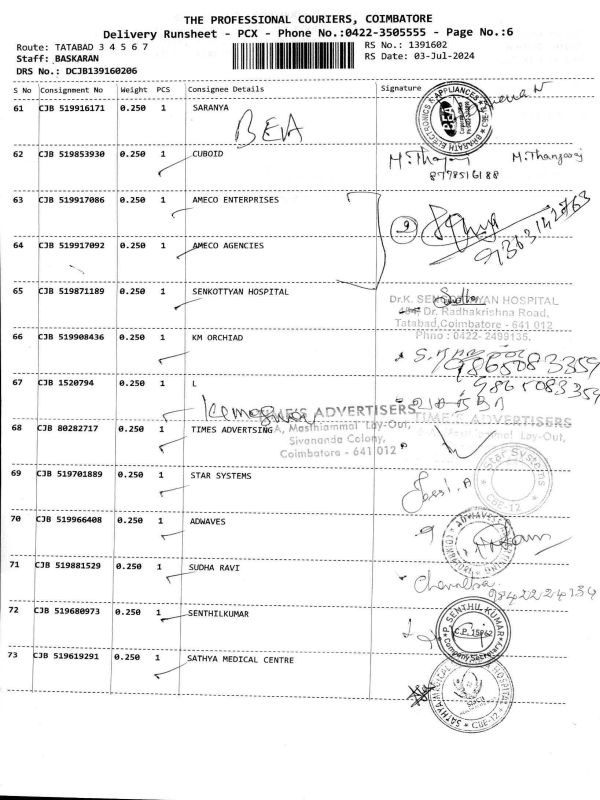 THE PROFESSIONAL COURIERS, COIMBATORE
Delivery Runsheet - PCX - Phone No.:0422-3505555 - Page No.:6
Route: TATABAD 3 4 5 6 7
RS No.: 1391602
Staff: BASKARAN
RS Date: 03-Jul-2024
DRS No.: DCJB139160206
S No Consignment No Weight PCS Consignee Details Signature
61 CJB 519916171 0.250 1 SARANYA
BEA
BHARATH ELECTRONICS & APPLIANCES
BEA
62 CJB 519853930 0.250 1 CUBOID
M. Thangaraj
8778516188
63 CJB 519917086 0.250 1 AMECO ENTERPRISES
9363142763
64 CJB 519917092 0.250 1 AMECO AGENCIES
65 CJB 519871189 0.250 1 SENKOTTYAN HOSPITAL
Dr.K. SENKOTTYAN HOSPITAL
Dr. Radhakrishna Road,
Tatabad, Coimbatore - 641 012
Phno : 0422- 2499135.
66 CJB 519908436 0.250 1 KM ORCHIAD
9865083359
67 CJB 1520794 0.250 1 L
9865083359
68 CJB 80282717 0.250 1 TIMES ADVERTSING
TIME'S ADVERTISERS
Masthiammal Lay-Out,
Sivananda Colony,
Coimbatore - 641 012
TIME'S ADVERTISERS
Lay-Out,
69 CJB 519701889 0.250 1 STAR SYSTEMS
Star Systems
CBE-12
70 CJB 519966408 0.250 1 ADWAVES
ADWAVES
71 CJB 519881529 0.250 1 SUDHA RAVI
72 CJB 519680973 0.250 1 SENTHILKUMAR
P. SENTHIL KUMAR
C.P. 15962
Company Secretary
73 CJB 519619291 0.250 1 SATHYA MEDICAL CENTRE
SATHYA MEDICAL HOSPITAL
CBE-12